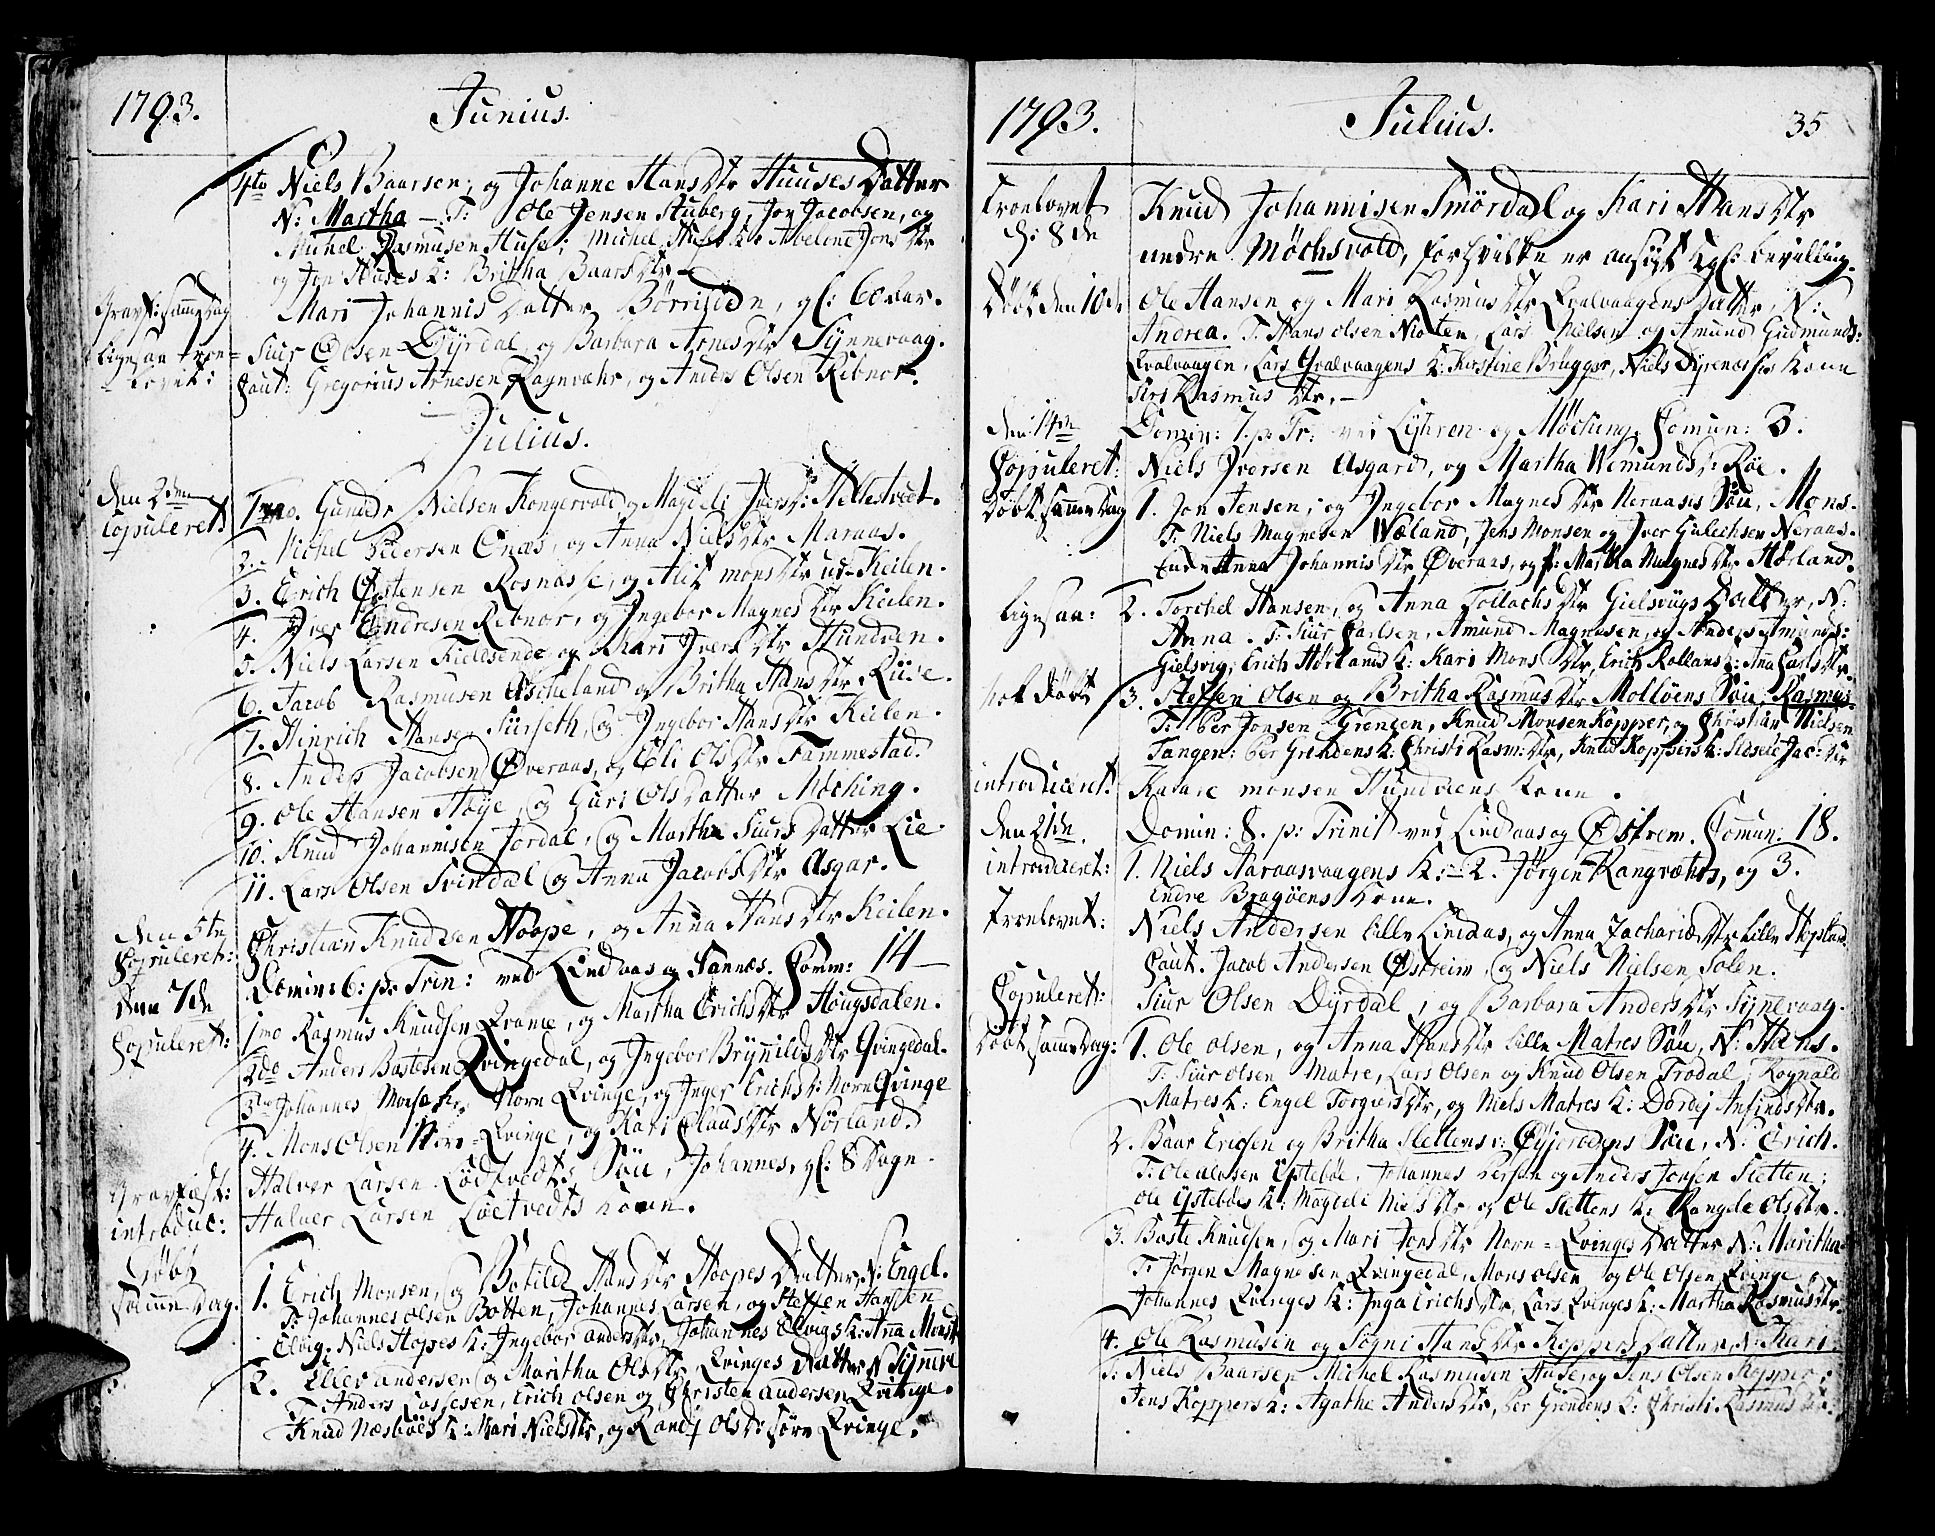 1793. Junius.
4to Niels Baarsen, og Johanne Hansdtr Huuses Datter
N: Martha – T: Ole Jensen Stuberg, Jon Jacobsen, og
Michel Rasmusen Huse; Michel Huses K: Abelone Jonsdtr
og Jon Huses K: Britha Baarsdtr –
Gravf: samme Dag Mari Johannis Datter Börrisidn, gl: 60 aar.
Ligesaa troe= Siur Olsen Dÿrdal, og Barbara Arnesdtr Sÿnnevaag.
lovet: Caut: Gregorius Arnesen Ragnvæhr, og Anders Olsen Ribnor.
Julius.
den 2den 1mo. Gunder Nielsen Kongervold og Magdeli Ivers: Helletvedt.
Copuleret: 2. Michel Pedersen Enæs, og Anna Nielsdtr Maraas.
3. Erich Østensen Rosnæsse, og Alis monsdtr ud-Keilen.
4. Iver Endresen Ribnor, og Ingebor Magnesdtr Keilen.
5. Niels Larsen Kieldsende og Kari Iversdtr Hundven.
6. Jacob Rasmusen Ascheland og Britha Hansdtr Riise.
7. Hinrich Hansen Siurseth, og Ingebor Hansdtr Keilen.
8. Anders Jacobsen Øveraas, og Eli Olsdtr Fammestad.
9. Ole Hansen Høÿe, og Guri Olsdatter Møching.
10. Knud Johannisen Jordal, og Martha Siurs Datter Lie
11. Lars Olsen Svindal og Anna Jacobsdtr Asgar.
den 5te Christian Knudsen Hoope, og Anna Hansdtr Keilen.
Copuleret:
den 7de Domin: 6: p: Trin: ved Lindaas og Sannæs. Comm: 14 –
Copuleret: 1mo Rasmus Knudsen Qvame, og Martha Erichsdtr Hougsdalen.
2do Anders Bastesen Qvingedal, og Ingebor Brÿnildsdtr Qvingedal.
3tio Johannes Norn Qvinge, og Inger Erichs: Norn Qvinge
4. Mons Olsen Norn=Qvinge, og Kari Claus dtr Nørland.
Gravfæst: Halver Larsen Lödtvedts Søn, Johannes, gl: 8 Dage.
introduc: Halver Larsen Löetvedts kone.
Döbt 1. Erich Monsen, og Botilde Hansdtr Hoopes Datter, N: Engel.
samme Dag. T: Johannes Olsen Botten, Johannes Larsen, og Steffen Hansen
Elvig. Niels Hopes K: Ingebor andersdtr, Johannes Elvigs K: Anna Monsd:
2. Ellev andersen og Maritha Olsdtr, Qvinges Datter N: Sÿnneve
T: Anders Lassesen, Erich olsen og Christen andersen Qvinge.
Knud Næsbøes K: Mari Nielsdtr, og Randj Olsd: sörn Qvinge.
1793. Julius. 35
Troelovet Knud Johannisen Smördal og Kari Hansdtr
d: 8de nedre Möchsvold, forhvilke er ansögt kgl: bevilling.
Döbt den 10de Ole Hansen og Mari Rasmusdtr Qvalvaagens datter, N:
Andrea. T: Hans Olsen Nioten, Lars Nielsen og Amund Gudmunds:
Qvalvaagen, Lars Qvalvaagens K: Kirstine Brugger, Niels Dyrenæsses Kone
Siri Rasmusdtr. –
den 14de Domin: 7. p: Tr: ved Lÿhren og Möching. Comun: 3.
Copuleret: Niels Iversen Asgard, og Martha Wemunds: Röe.
Döbt samme Dag 1. Jon Jensen, og Ingebor Magnesdtr Neraases Søn, Mons.
T: Niels Magnesen Wæland, Jens Monsen og Iver Gulichsen Neraas.
Anna Johannisdtr Øveraas, og p: Martha Magnesdtr Hørland.
ligesaa: 2. Torchel Hansen, og Anna Tollachsdtr Gielsvigs Datter, N:
Anna. T: Siur Carlsen, Amund Magnesen, og Anders Amunds:
Gielsvig, Erich Hørlands K: Kari Monsdtr, Erich Rollans K: Anna Carlsdtr.
hob Döbt 3. Steffen Olsen og Britha Rasmusdtr Mollöens Søn, Rasmus.
T: ber Jonsen Grensen, Knud Monsen Kopper, og Christian Nielsen
Tangen: ber Grendens K: Christi Rasm:dtr, Knud Koppers K: Sidsele Jac:dtr
introduceret: Rasmus monsen Hundvens kone.
den 21de. Domin: 8. p: Trinit ved Lindaas og Østrem. Comun: 18.
introduceret: 1. Niels Aaraasvaagens K: – 2. Jørgen Rangvæhrs, og 3.
Endre Bragöens kone.
Troelovet: Niels Andersen lille Lindaas, og Anna Zachariædtr lille Hopsland
Caut. Jacob Andersen Østreim, og Niels Nielsen Solen.
Copuleret: Siur Olsen Dÿrdal, og Barbara Andersdtr Sÿnevaag.
Döbt samme Dag: 1. Ole olsen, og Anna Hansdtr lille Matres Søn, N: Hans.
T: Siur olsen Matre, Lars Olsen og Knud Olsen Trodal, Rognald
Matres K: Engel Torgiersdtr, og Niels Matres K: Dordej Anfindsdtr.
2. Baar Ericsen og Britha Slettens: Øÿjerodens Søn, N: Erich.
T: Ole olosen Ÿsteböe, Johannes Persen og Anders Jonsen Sletten;
Ole Ÿsteböes K: Magdele Nielsdtr, og Ole Slettens K: Rangde Olsdtr.
3. Baste Knudsen, og Mari Jonsdtr Norn=Qvinges Datter N: Maritha
T: Jørgen Magnesen Qvingedal, Mons olsen og Ole Olsen Qvinge,
Johannes Qvinges K: Inga Erichsdtr, Lars Qvinges K: Martha Rasmusdtr
4. Ole Rasmusen og Sögni Hansdtr Koppers Datter, N: Kari.
T: Niels Baarsen, Michel Rasmusen Huse, og Jens Olsen Kopper,
Jens Koppers K: Agathe Andersdtr, ber Grendens K: Christi Rasmusdtr.